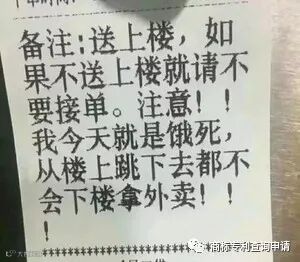 备注:送上楼，如
果不送上楼就请不
要接单。注意！！
我今天就是饿死，
从楼上跳下去都不
会下楼拿外卖！！
！
商标专利查询申请